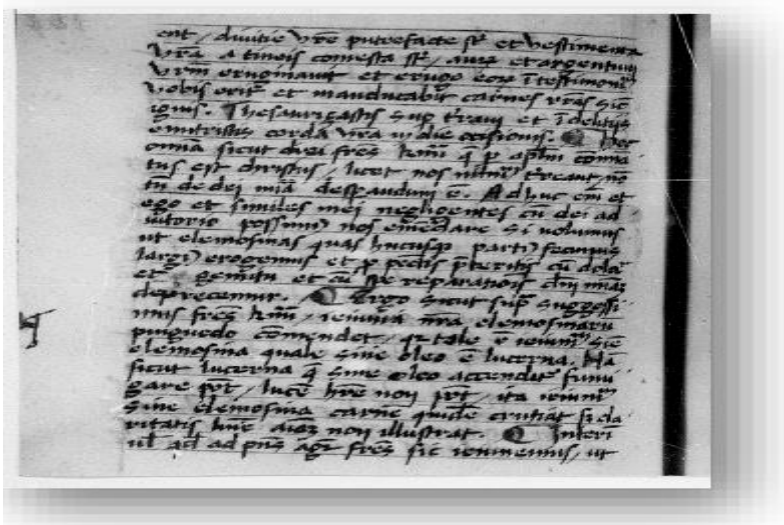 ent / divitie vr̄e putrefacte st̄ et vestimenta
vr̄a a tineis comesta st̄ / et argentum
vrm̄ eruginavit et erugo eoꝝ ī testimoniū
vobis erit et manducabit carnes vr̄as sic
ignis. Thesaurizastis sup et ī delitijs
enutristis corda vr̄a in die occisionis. Hec
omnia sicut dixi fr̄es km̄i q̄ p aplm̄
tus est christus / licet nos nimiū t̄reant nō
tn̄ de dei mīa despandum ē. Adhuc em̄ et
ego et similes mei negligentes cū dei ad
iutorio possumꝰ nos emēdare si volumus
ut elemosinas quas hucusqꝫ fecimus
largiꝰ erogemus et p pctis p̄teritis cū
et gemitu et cū spe reparationis dn̄i mīaꝫ
deprecemur. Ergo sicut supꝰ suggessi
mus fr̄es km̄i / ieiunia nr̄a elemosinarū
pinguedo cōmendet / qꝛ tale ē ieiuniū sine
elemosina quale sine oleo ē lucerna. Nā
sicut lucerna q̄ sine oleo accendit᷑ fumi
gare pōt / lucē hr̄e non pōt / ita ieiuniū
sine elemosina carnē quidē cruciat sꝫ cla
ritatis lumē non illustrat. Interi
ad pn̄s fr̄es sic ieiunemus / ut